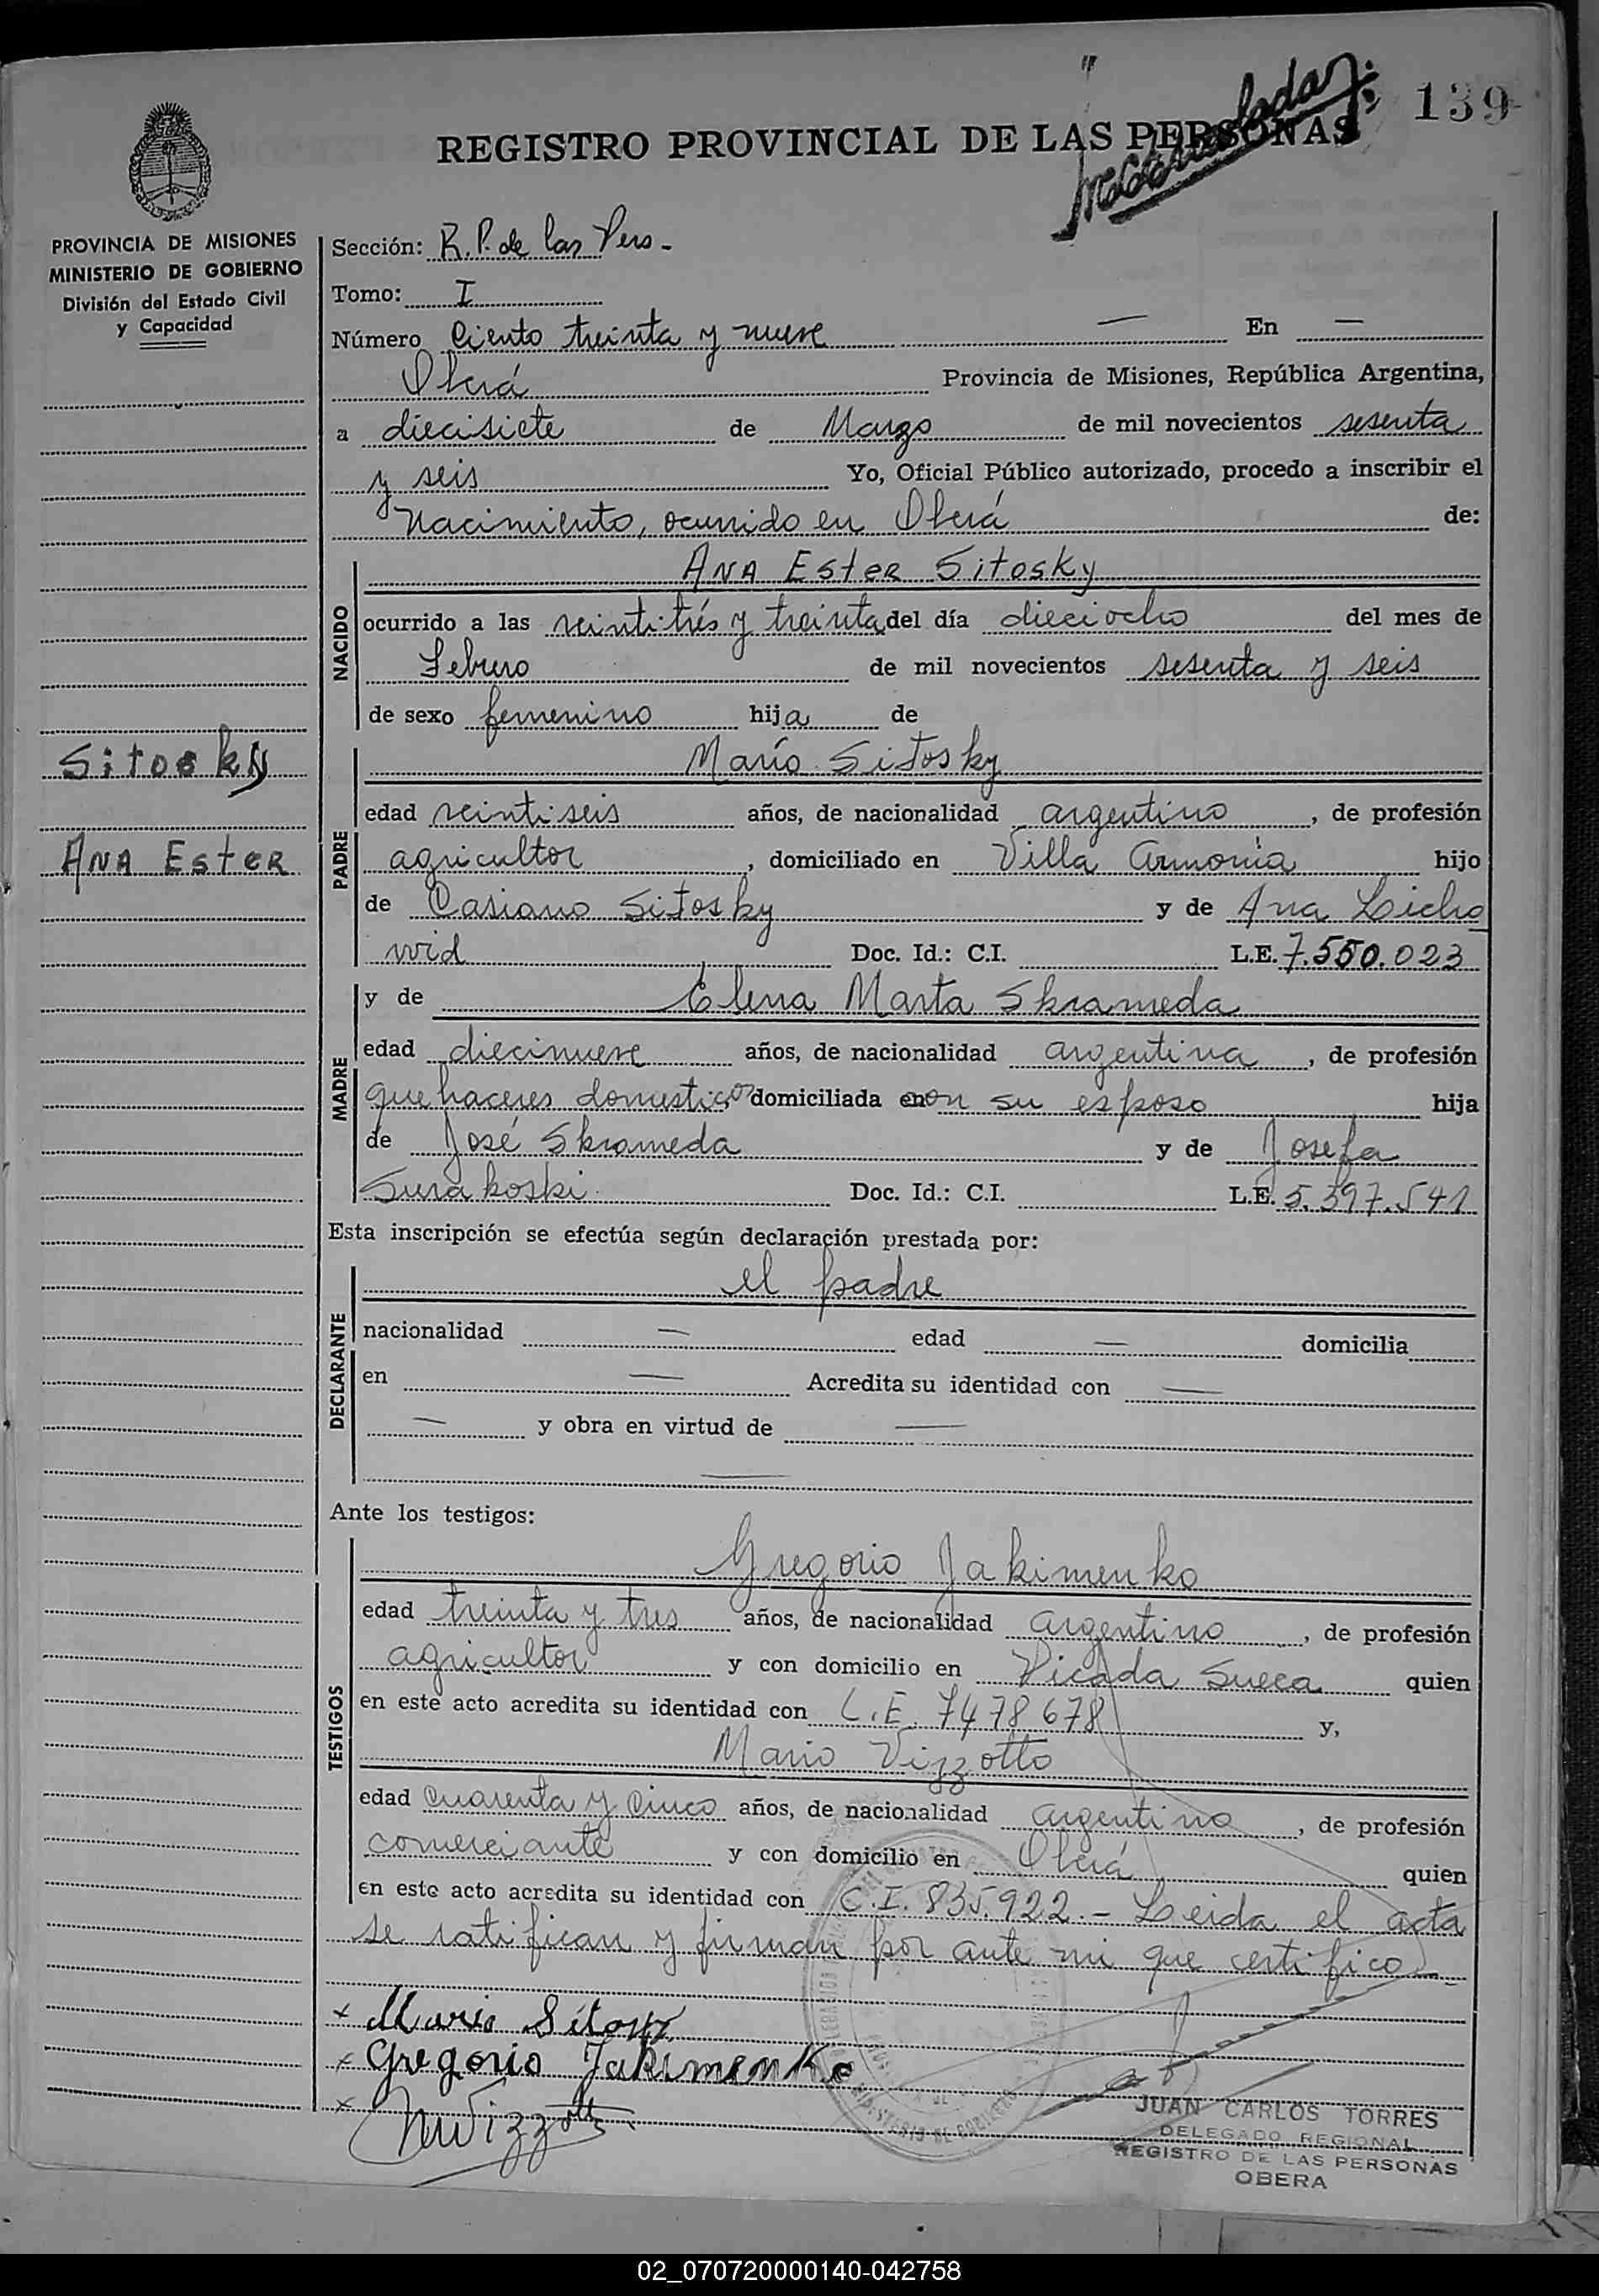 139
REGISTRO PROVINCIAL DE LAS PERSONAS
PROVINCIA DE MISIONES
MINISTERIO DE GOBIERNO
División del Estado Civil
y Capacidad
Sitosky
Ana Ester
Sección: R. P. de las Pers -
Tomo: I
Número Ciento treinta y nueve — En —
Oberá Provincia de Misiones, República Argentina,
a diecisiete de Marzo de mil novecientos sesenta
y seis Yo, Oficial Público autorizado, procedo a inscribir el
Nacimiento, ocurrido en Oberá de:
NACIDO
Ana Ester Sitosky
ocurrido a las veintitrés y treinta del día dieciocho del mes de
Febrero de mil novecientos sesenta y seis
de sexo femenino hija de
PADRE
Mario Sitosky
edad veintiseis años, de nacionalidad argentino, de profesión
agricultor, domiciliado en Villa Armonía hijo
de Casiano Sitosky y de Ana Licho
wid Doc. Id.: C.I. L.E. 7.550.023
MADRE
y de Elena Marta Skrameda
edad diecinueve años, de nacionalidad argentina, de profesión
quehaceres domestico domiciliada con su esposo hija
de José Skrameda y de Josefa
Surakoski Doc. Id.: C.I. L.E. 5.397.541
Esta inscripción se efectúa según declaración prestada por:
DECLARANTE
el padre
nacionalidad — edad — domicilia
en — Acredita su identidad con —
— y obra en virtud de —
—
Ante los testigos:
TESTIGOS
Gregorio Jakimenko
edad treinta y tres años, de nacionalidad argentino, de profesión
agricultor y con domicilio en Picada Sueca quien
en este acto acredita su identidad con L.E. 7478678 y,
Mario Vizzotto
edad Cuarenta y Cinco años, de nacionalidad argentino, de profesión
comerciante y con domicilio en Oberá quien
en este acto acredita su identidad con C.I. 835.922.- Leida el acta
se ratifican y firman por ante mi que certifico -
x Mario Sitosky
x Gregorio Jakimenko
x MVizzotto
JUAN CARLOS TORRES
DELEGADO REGIONAL
REGISTRO DE LAS PERSONAS
OBERA
02_070720000140-042758